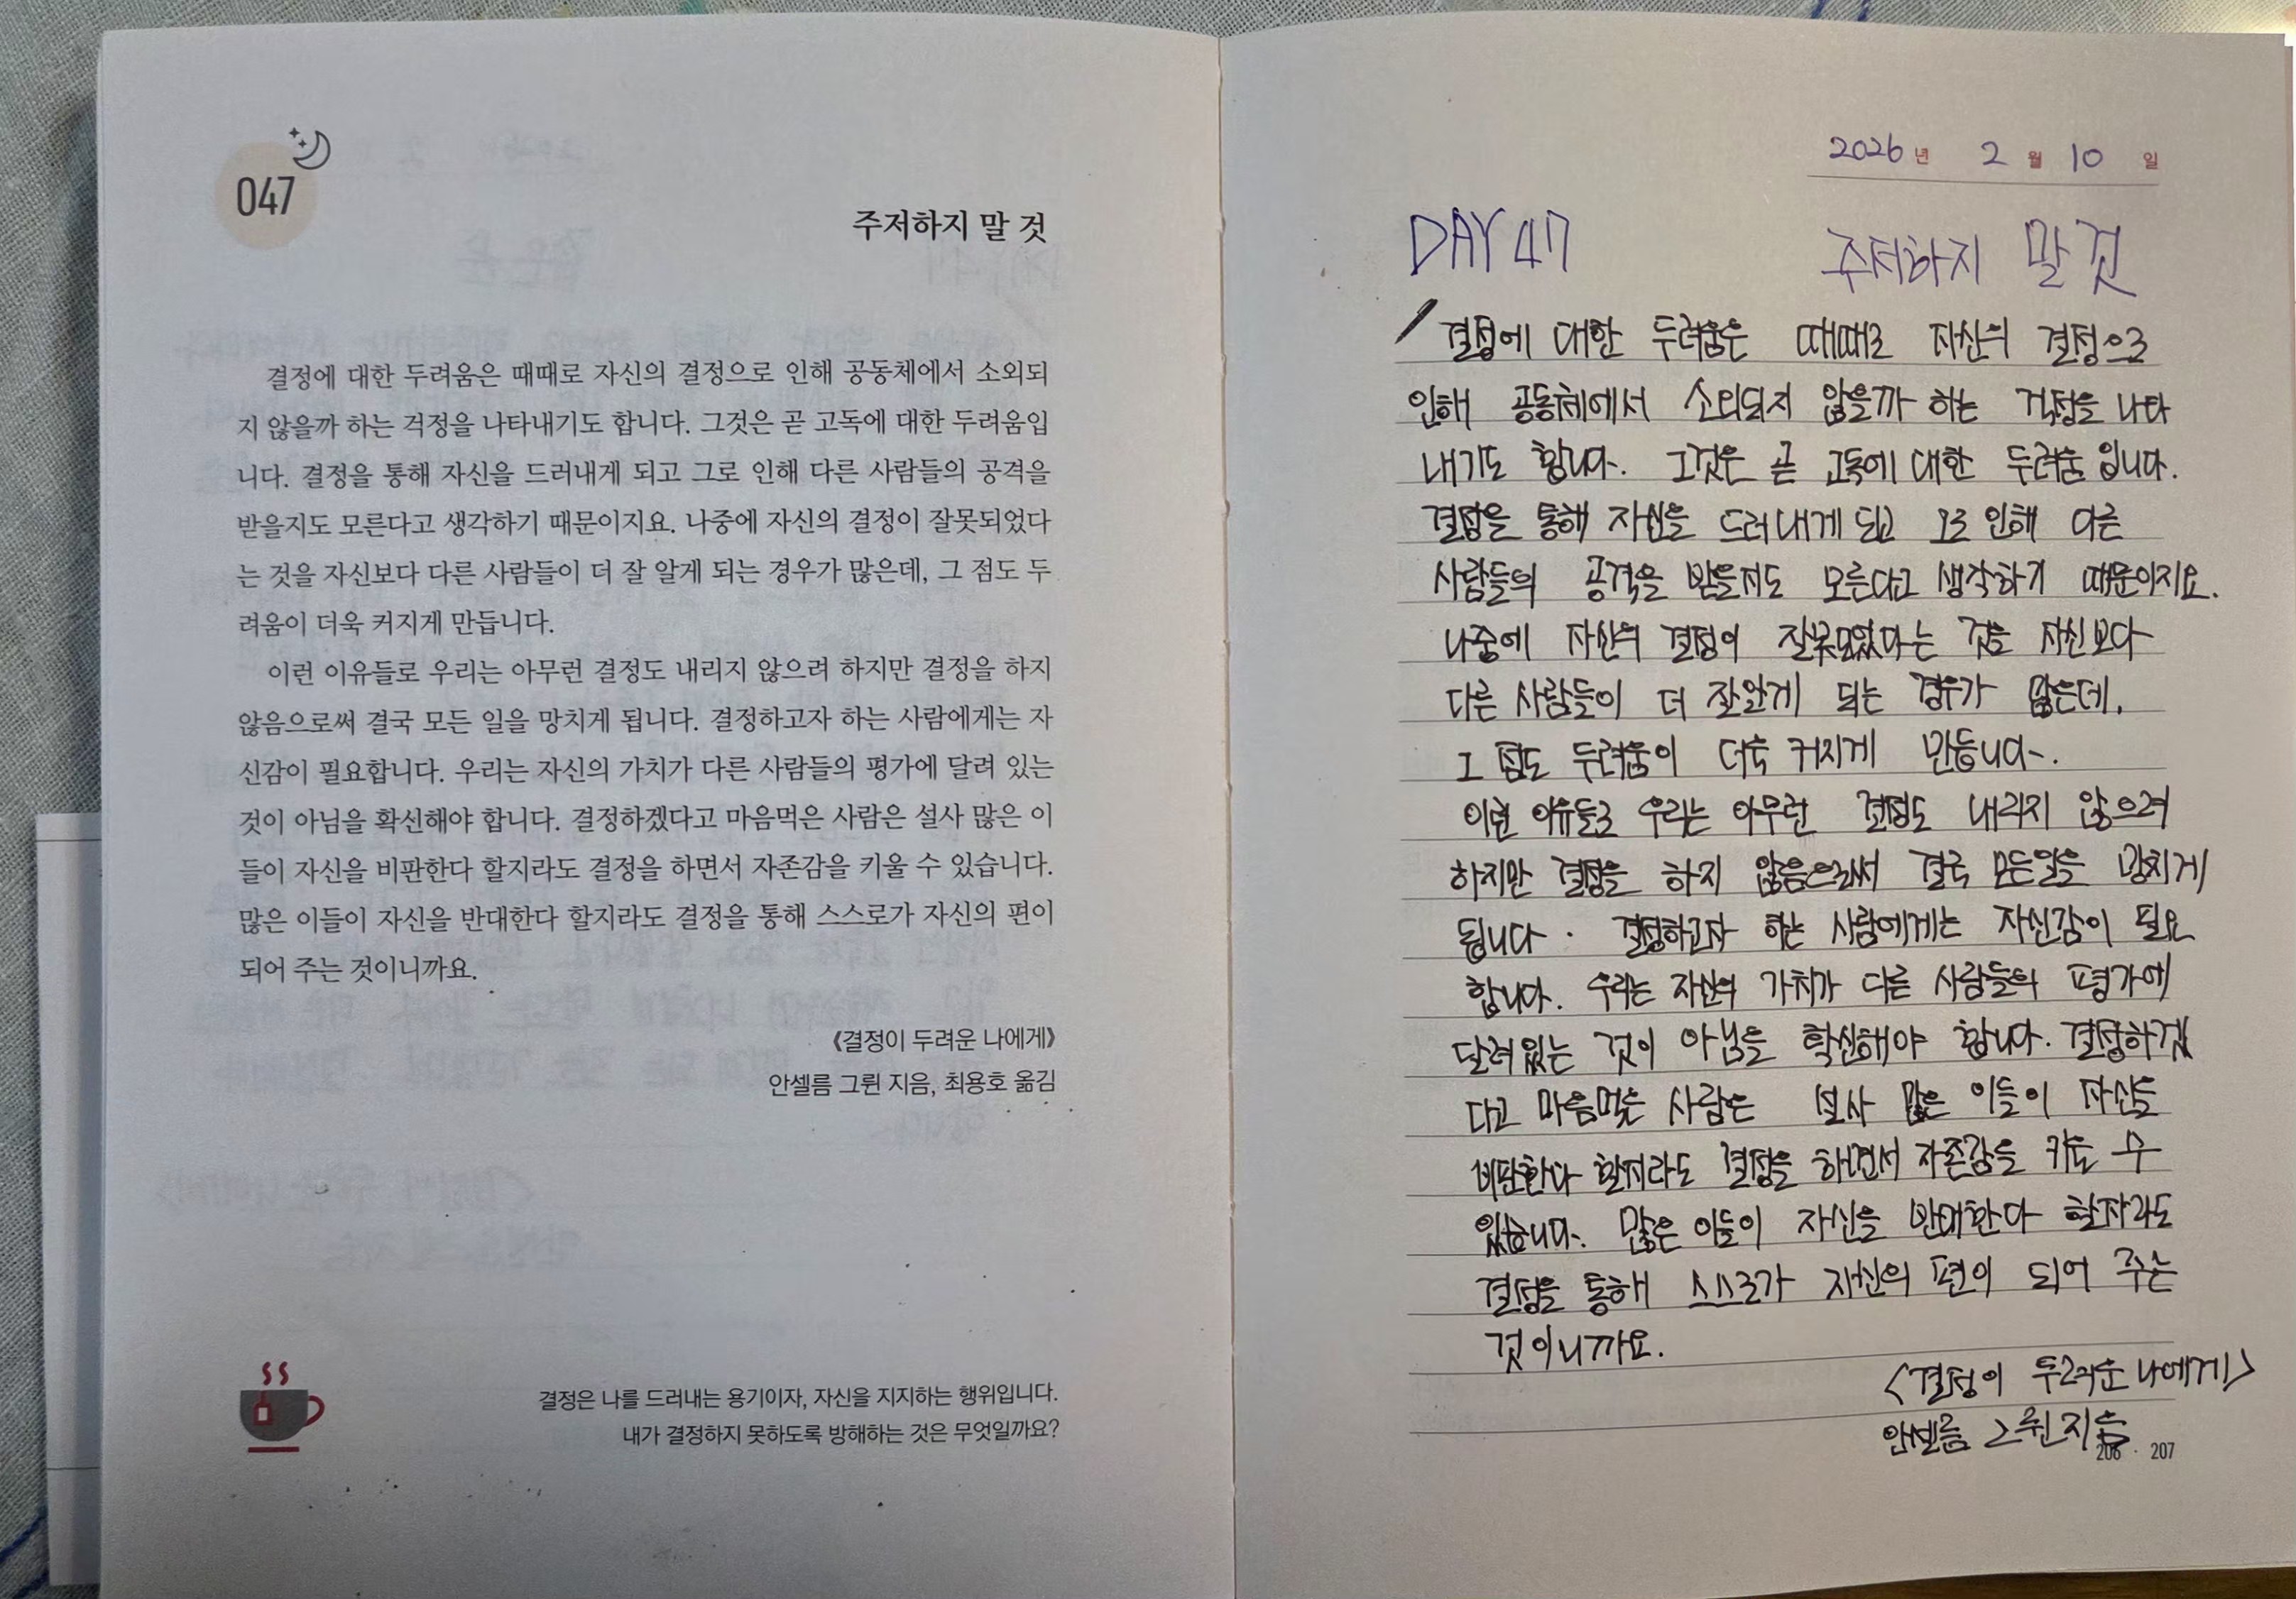 047
주저하지 말 것
결정에 대한 두려움은 때때로 자신의 결정으로 인해 공동체에서 소외되
지 않을까 하는 걱정을 나타내기도 합니다. 그것은 곧 고독에 대한 두려움입
니다. 결정을 통해 자신을 드러내게 되고 그로 인해 다른 사람들의 공격을
받을지도 모른다고 생각하기 때문이지요. 나중에 자신의 결정이 잘못되었다
는 것을 자신보다 다른 사람들이 더 잘 알게 되는 경우가 많은데, 그 점도 두
려움이 더욱 커지게 만듭니다.
이런 이유들로 우리는 아무런 결정도 내리지 않으려 하지만 결정을 하지
않음으로써 결국 모든 일을 망치게 됩니다. 결정하고자 하는 사람에게는 자
신감이 필요합니다. 우리는 자신의 가치가 다른 사람들의 평가에 달려 있는
것이 아님을 확신해야 합니다. 결정하겠다고 마음먹은 사람은 설사 많은 이
들이 자신을 비판한다 할지라도 결정을 하면서 자존감을 키울 수 있습니다.
많은 이들이 자신을 반대한다 할지라도 결정을 통해 스스로가 자신의 편이
되어 주는 것이니까요.
《결정이 두려운 나에게》
안셀름 그륀 지음, 최용호 옮김
결정은 나를 드러내는 용기이자, 자신을 지지하는 행위입니다.
내가 결정하지 못하도록 방해하는 것은 무엇일까요?
2026년 2월 10일
DAY 47 주저하지 말 것
결정에 대한 두려움은 때때로 자신의 결정으로
인해 공동체에서 소외되지 않을까 하는 걱정을 나타
내기도 합니다. 그것은 곧 고독에 대한 두려움 입니다.
결정을 통해 자신을 드러내게 되고 그로 인해 다른
사람들의 공격을 받을지도 모른다고 생각하기 때문이지요.
나중에 자신의 결정이 잘못되었다는 것을 자신보다
다른 사람들이 더 잘알게 되는 경우가 많은데,
그 점도 두려움이 더욱 커지게 만듭니다.
이런 이유들로 우리는 아무런 결정도 내리지 않으려
하지만 결정을 하지 않음으로써 결국 모든일을 망치게
됩니다. 결정하고자 하는 사람에게는 자신감이 필요
합니다. 우리는 자신의 가치가 다른 사람들의 평가에
달려있는 것이 아님을 확신해야 합니다. 결정하겠
다고 마음먹은 사람은 설사 많은 이들이 자신을
비판한다 할지라도 결정을 하면서 자존감을 키울 수
있습니다. 많은 이들이 자신을 반대한다 할지라도
결정을 통해 스스로가 자신의 편이 되어 주는
것이니까요.
<결정이 두려운 나에게>
안셀름 그륀 지음
206 · 207